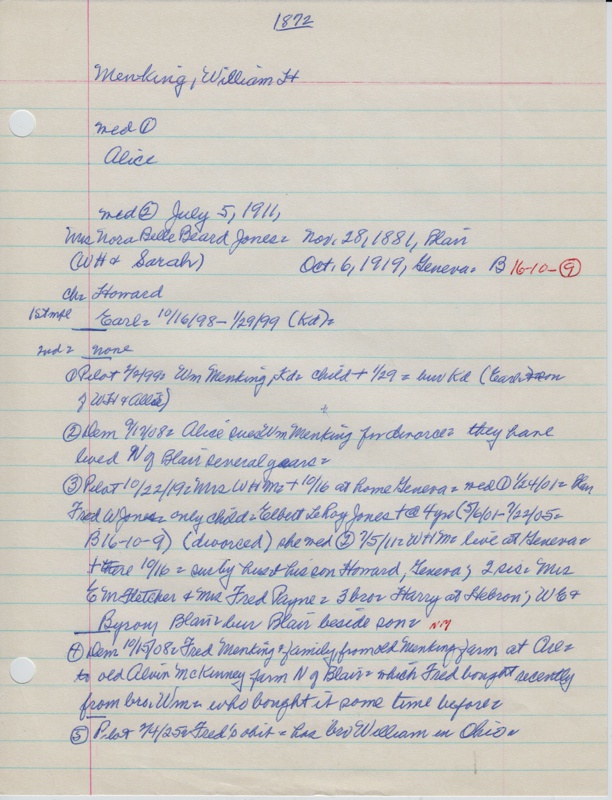 1872
Menking, William H
med ①
Alice
med ② July 5, 1911,
Mrs Nora Belle Beard Jones = Nov. 28, 1881, Blair
(WH & Sarah) Oct. 6, 1919, Geneva = B 16-10-⑨
ch = Howard
1st mge Earl = 10/16/98 - 1/29/99 (Kd) =
2nd = none
① Pilot 2/2/99 = Wm Menking, Kd = child + 1/29 = bur Kd (Earl = son
of WH & Allie)
② Dem 9/17/08 = Alice sues Wm Menking for divorce = they have
lived N of Blair several years =
③ Pilot 10/22/19 = Mrs WH M = + 10/16 at home Geneva = med ① 1/24/01 = Blair
Fred W Jones = only child = Elbert LeRoy Jones + @ 4 yrs (5/6/01 - 7/22/05 =
B 16-10-9) (divorced) she med ② 7/5/11 = WH M = live at Geneva =
+ there 10/16 = sur by husb & his son Howard, Geneva; 2 sis = Mrs
E M Fletcher & Mrs Fred Payne = 3 bro = Harry at Hebron; WE &
Byron, Blair = bur Blair beside son = NM
④ Dem 10/15/08 = Fred Menking & family from old Menking farm at Ave =
to old Alvin McKinney farm N of Blair = which Fred bought recently
from bro. Wm = who bought it some time before =
⑤ Pilot 2/4/25 = Fred's obit = has bro William in Ohio =